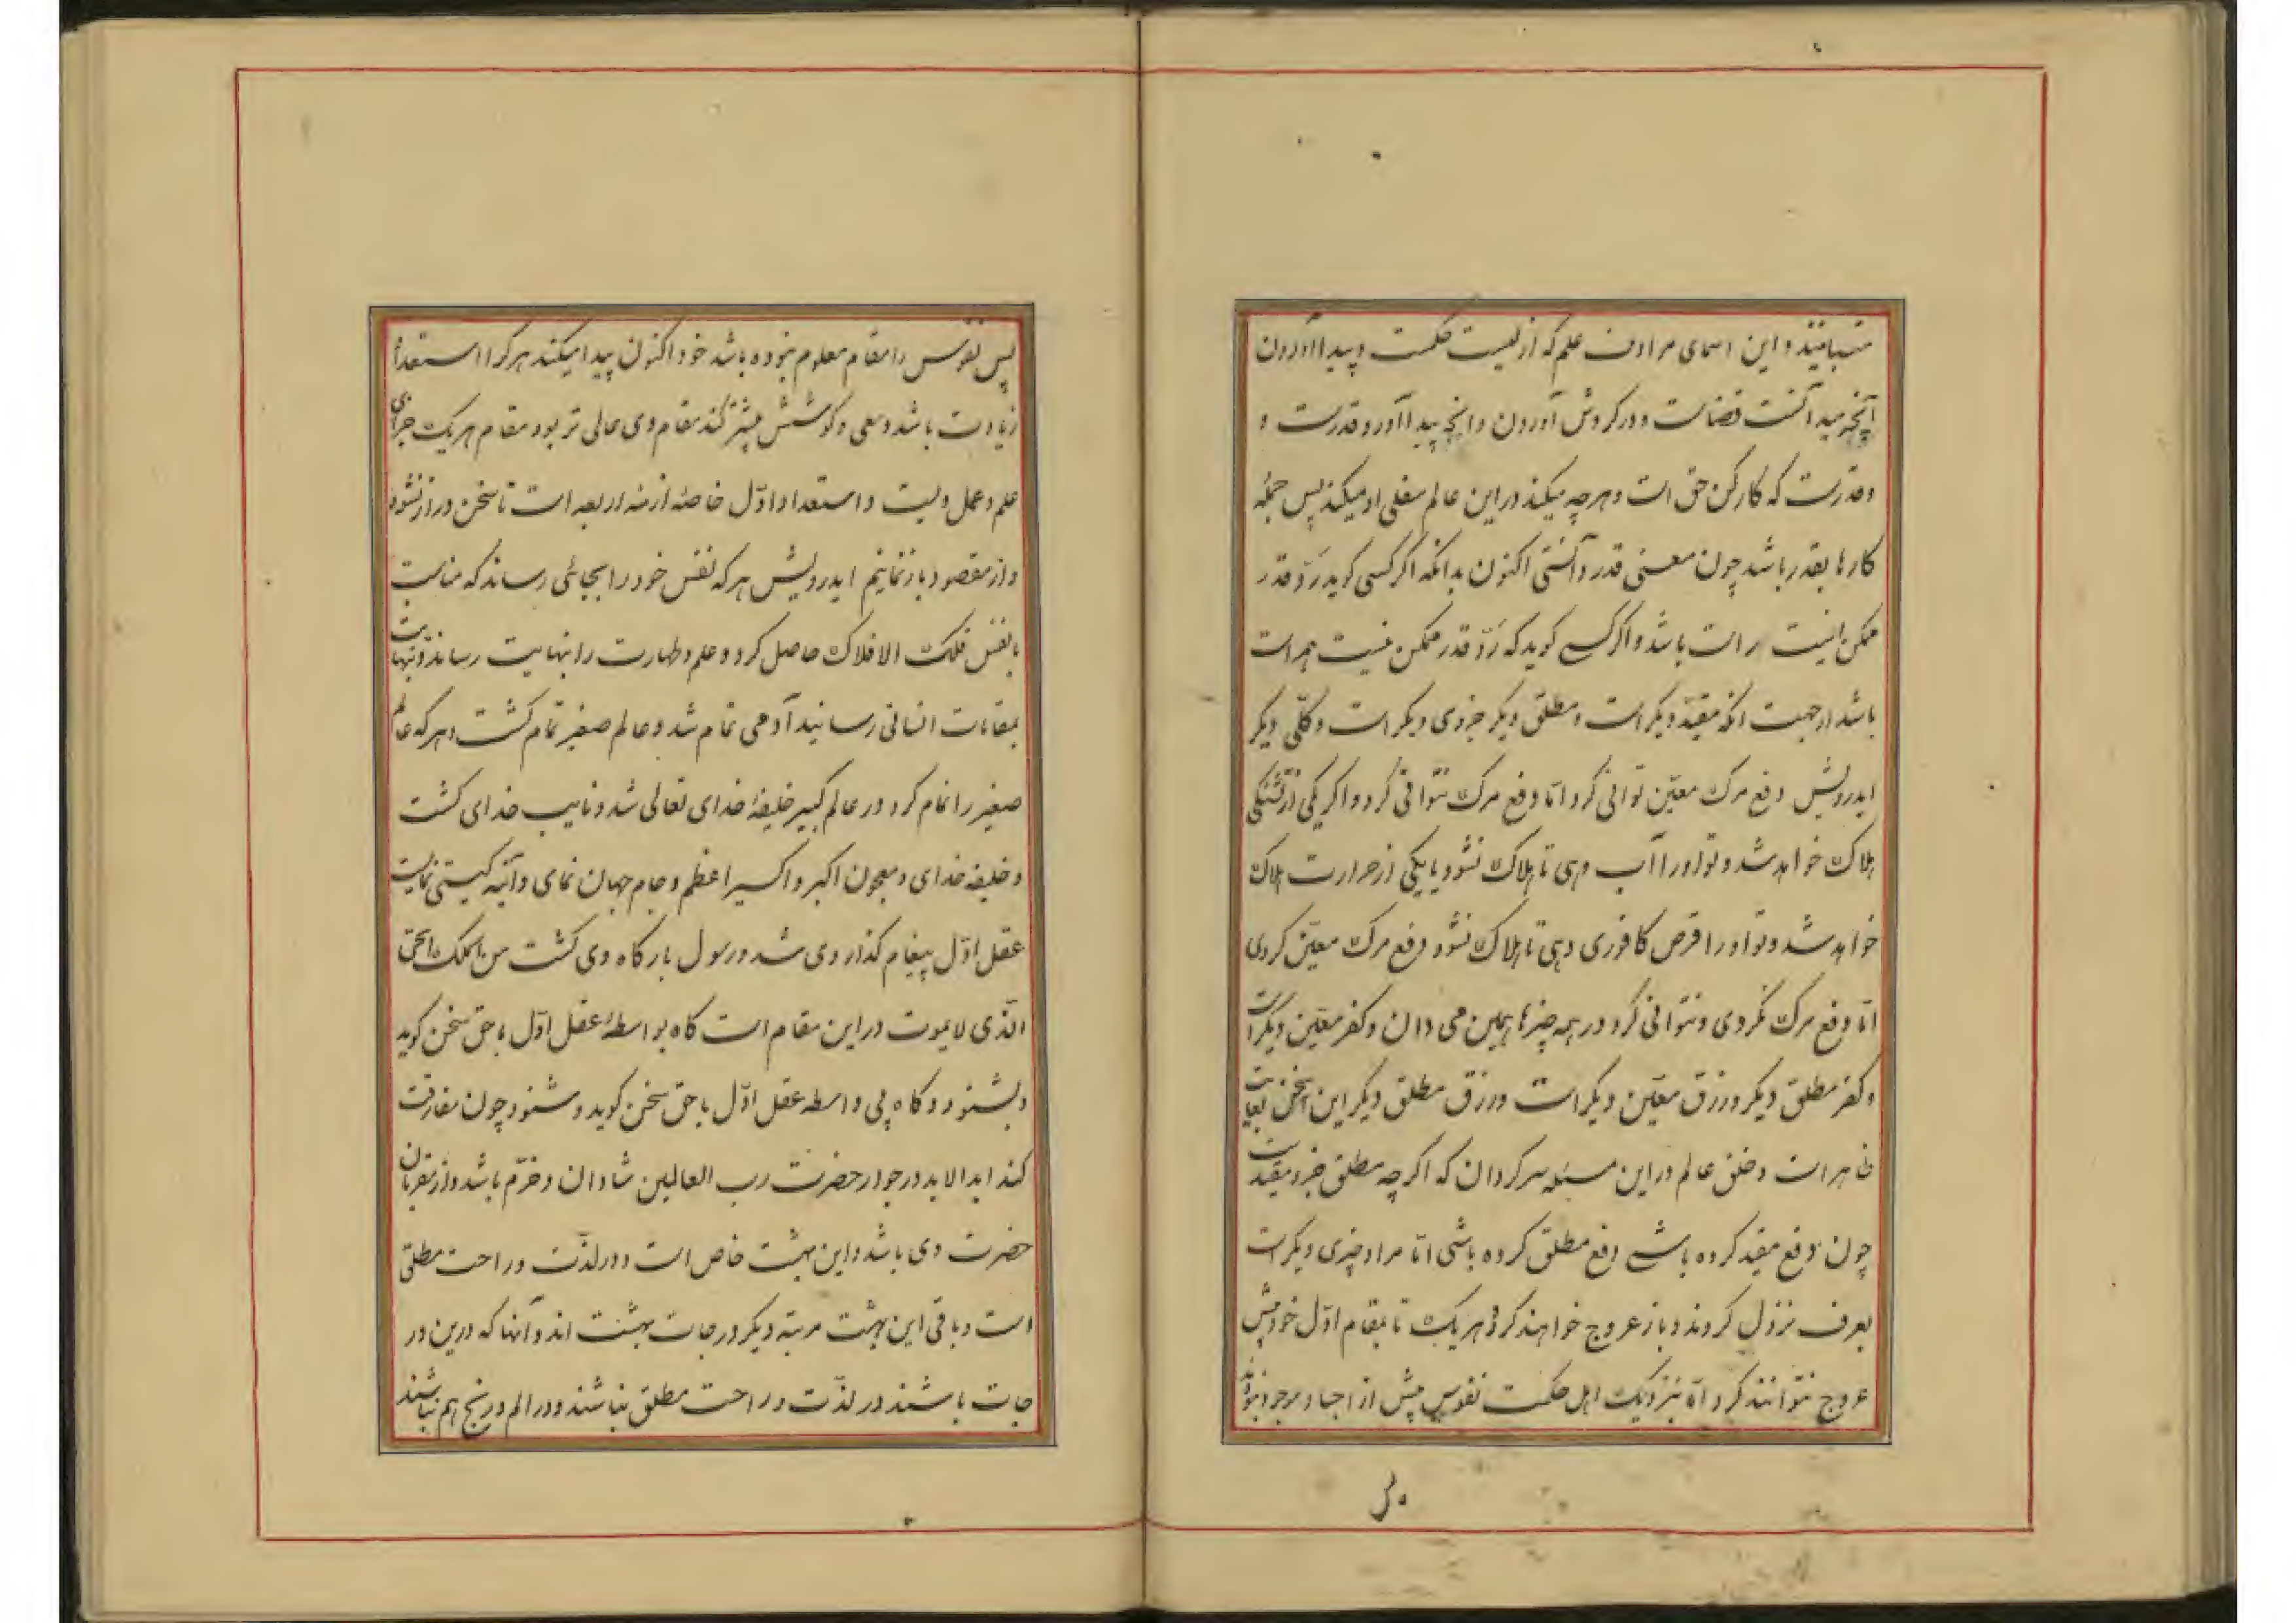 متباینند و این اسمای مرادف علم که ازلیست حکمت و پیدا آوردن
آنچه میدانست قضاست و در کردش آوردن وانچه پیدا آورد قدرست و
و قدرست که کارکن حق است و هرچه میکند در این عالم سفلی او میکند پس جمله
کارها بقدر باشد چون معنی قدر دانستی اکنون بدانکه اکر کسی کوید رد قدر
ممکن است راست باشد و اکر کسی کوید که رد قدر ممکن نیست هم راست
باشد از جهت انکه مقید دیکر است و مطلق دیکر جزوی دیکر است و کلی دیکر
ایدرویش دفع مرک معین توانی کرد اما دفع مرک نتوانی کرد و اکر یکی از تشنکی
هلاک خواهد شد و تو او را آب دهی تا هلاک نشود یا یکی از حرارت هلاک
خواهد شد و تو او را قرص کافوری دهی تا هلاک نشود دفع مرک معین کردی
اما دفع مرک نکردی و نتوانی کرد در همه چیزها همین می دان و کفر معین دیکر است
و کفر مطلق دیکر و رزق معین دیکر است و رزق مطلق دیکر این سخن بغایت
ظاهر است و خلق عالم در این مسئله سرکردان که اکرچه مطلق جزو مقید است
چون دفع مقید کرده باشی دفع مطلق کرده باشی اما مراد چیزی دیکر است
بعرف نزول کردند و باز عروج خواهند کرد و هر یک تا بمقام اول خود بیش
عروج نتوانند کرد اما بنزدیک اهل حکمت نفوس پیش از اجساد موجود نبودند
پس
پس نفوس را مقام معلوم نبوده باشد خود اکنون پیدا میکنند هر کرا استعداد
زیادت باشد و سعی و کوشش بیشتر کند مقام وی عالی تر بود مقام هر یک جزای
علم و عمل ویست و استعداد اول خاصه ازمنه اربعه است تا سخن دراز نشود
و از مقصود باز نمانیم ایدرویش هر که نفس خود را بجائی رساند که مناسبت
با نفس فلک الافلاک حاصل کرد و علم و طهارت را بنهایت رساند و بنهایت
بمقامات انسانی رسانید آدمی تمام شد و عالم صغیر تمام کشت و هر که عالم
صغیر را تمام کرد در عالم کبیر خلیفه خدای تعالی شد و نایب خدای کشت
و خلیفه خدای و معجون اکبر و اکسیر اعظم و جام جهان نمای و آئینه کیتی نمایست
عقل اول پیغام کذار وی شد و رسول بارکاه وی کشت من الملک الحی
الذی لا یموت در این مقام است کاه بواسطه عقل اول با حق سخن کوید
و بشنود و کاه بی واسطه عقل اول با حق سخن کوید و شنود چون مفارقت
کند ابد الابد در جوار حضرت رب العالمین شادان و خرم باشد و از مقربان
حضرت وی باشد و این بهشت خاص است و در لذت و راحت مطلق
است و باقی این بهشت مرتبه دیکر درجات بهشت اند و آنها که درین در
جات باشند در لذت و راحت مطلق نباشند و در الم و رنج هم نباشند